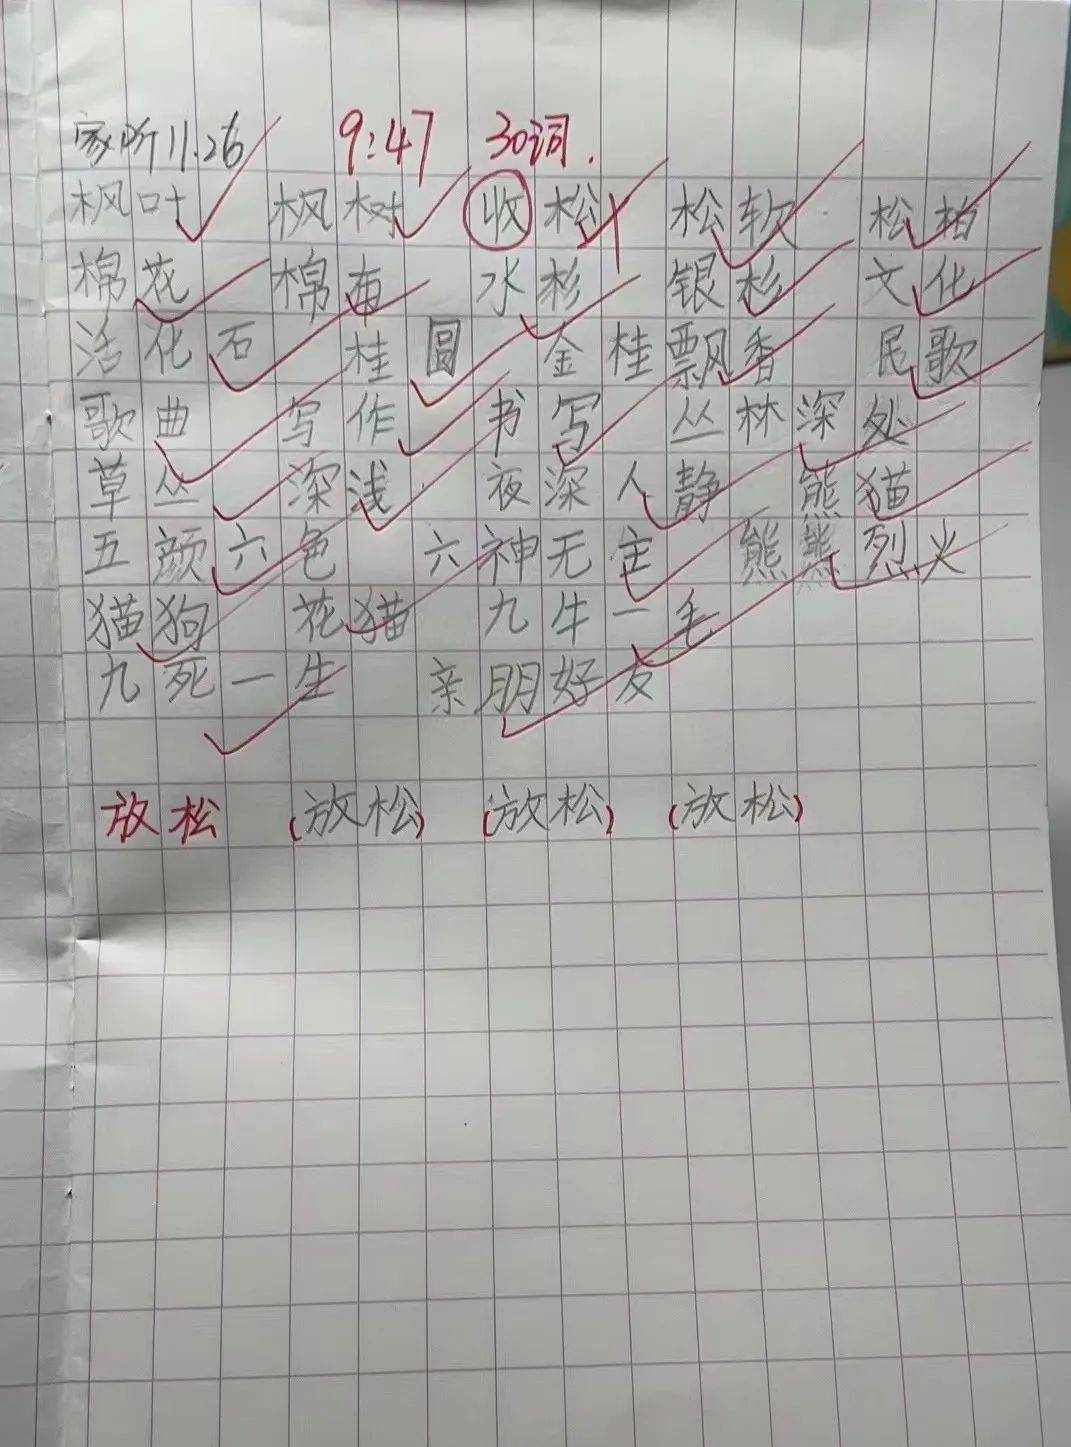 家听11.26 9:47 30词.
枫叶 枫树 收松 松软 松柏
棉花 棉布 水杉 银杉 文化
活化石 桂圆 金桂飘香 民歌
歌曲 写作 书写 丛林深处
草丛 深浅 夜深人静 熊猫
五颜六色 六神无主 熊熊烈火
猫狗 花猫 九牛一毛
九死一生 亲朋好友
放松 (放松) (放松) (放松)